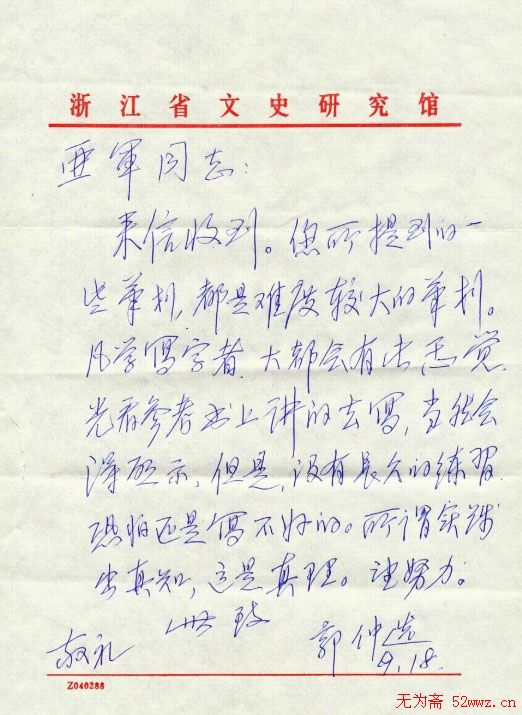 浙江省文史研究馆
亚軍同志：
来信收到。您所提到的一
些笔划，都是难度较大的笔划。
凡学写字者，大都会有此感觉。
光看参考书上讲的去写，当然会
得启示，但是，没有长久的练习
恐怕还是写不好的。所谓实践
出真知，这是真理。望努力。
此致
敬礼
郭仲选
9.18.
Z040288
无为斋 52wwz.cn